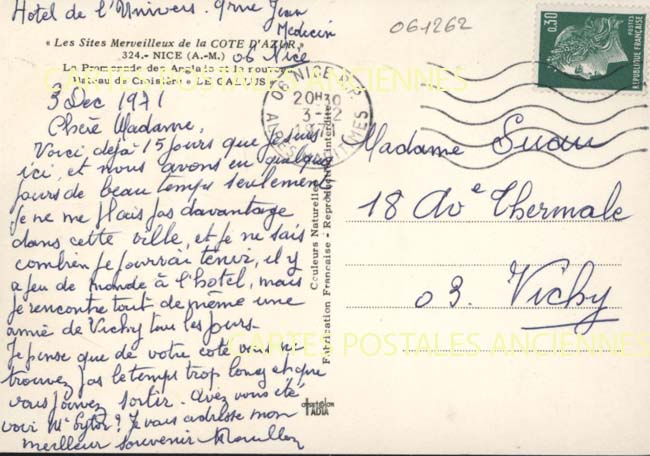 Hotel de l'Univers. 9 rue Jean
Medecin
06 Nice
061262
« Les Sites Merveilleux de la COTE D'AZUR »
324.- NICE (A.-M.)
La Promenade des Anglais et la route
Bateau de Croisière « LE GALLUS »
3 Dec 1971
Chère Madame,
Voici déjà 15 jours que je suis
ici, et nous avons eu quelques
jours de beau temps seulement
je ne me plais pas davantage
dans cette ville, et je ne sais
combien je pourrai tenir, il y
a peu de monde à l'hotel, mais
je rencontre tout de même une
amie de Vichy tous les jours.
Je pense que de votre coté vous ne
trouvez pas le temps trop long et que
vous pouvez sortir. Avez vous été
voir Mr ? Je vais adresse mon
meilleur souvenir
06 NICE R.P.
20H30
3-12
ALPES MARITIMES
0,30
POSTES
REPUBLIQUE FRANÇAISE
Madame Suau
18 Ave Thermale
03. Vichy
Couleurs Naturelles
Fabrication Française - Reproduction interdite
TADIA
CARTES POSTALES ANCIENNES
CARTES POSTALES ANCIENNES